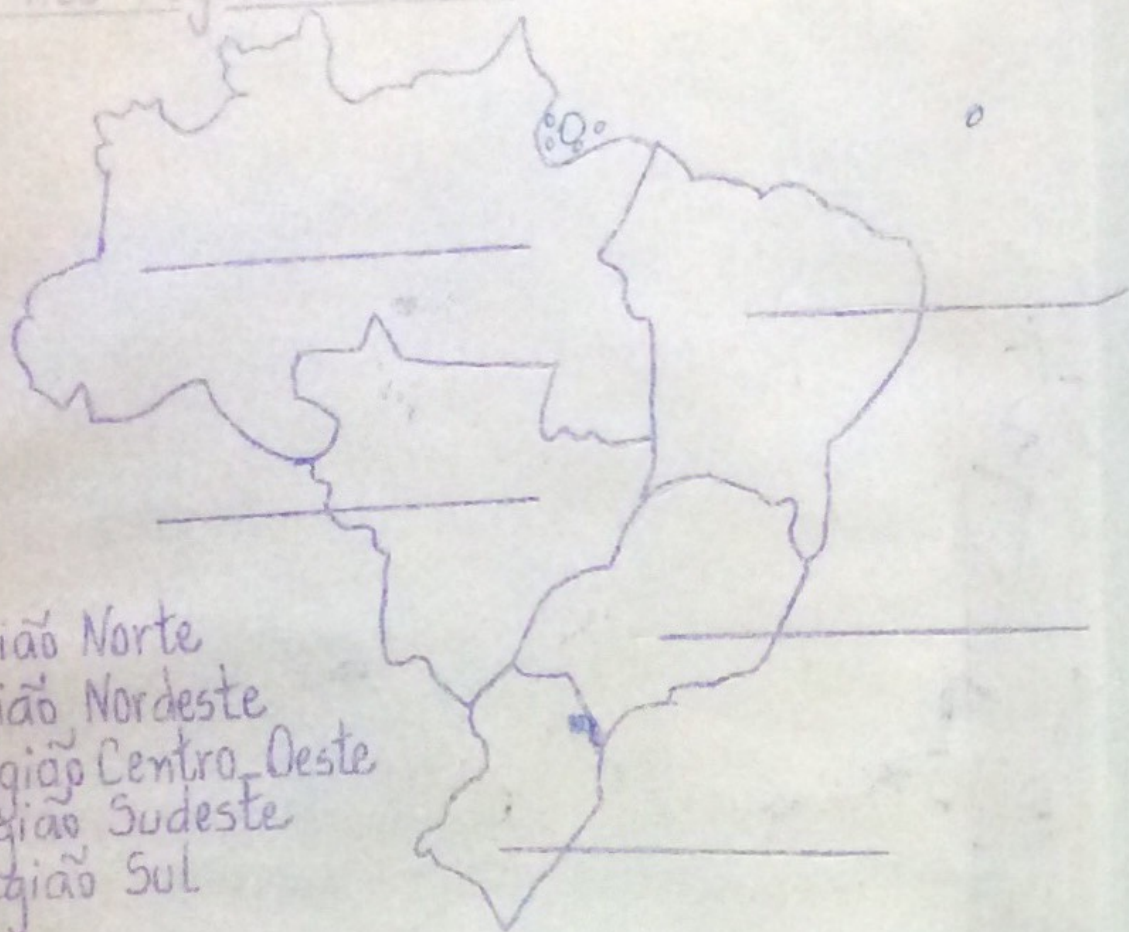 ião Norte
ião Nordeste
gião Centro-Oeste
gião Sudeste
gião Sul